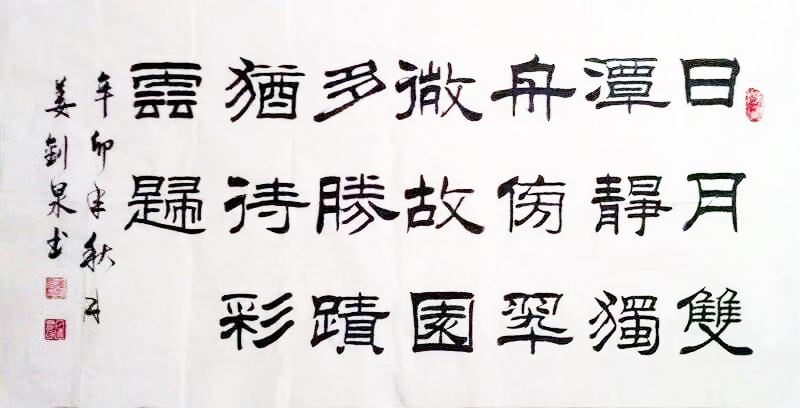 日月雙
潭靜獨
舟傍翠
微故園
多勝蹟
猶待彩
雲歸
辛卯年秋月
姜泉书